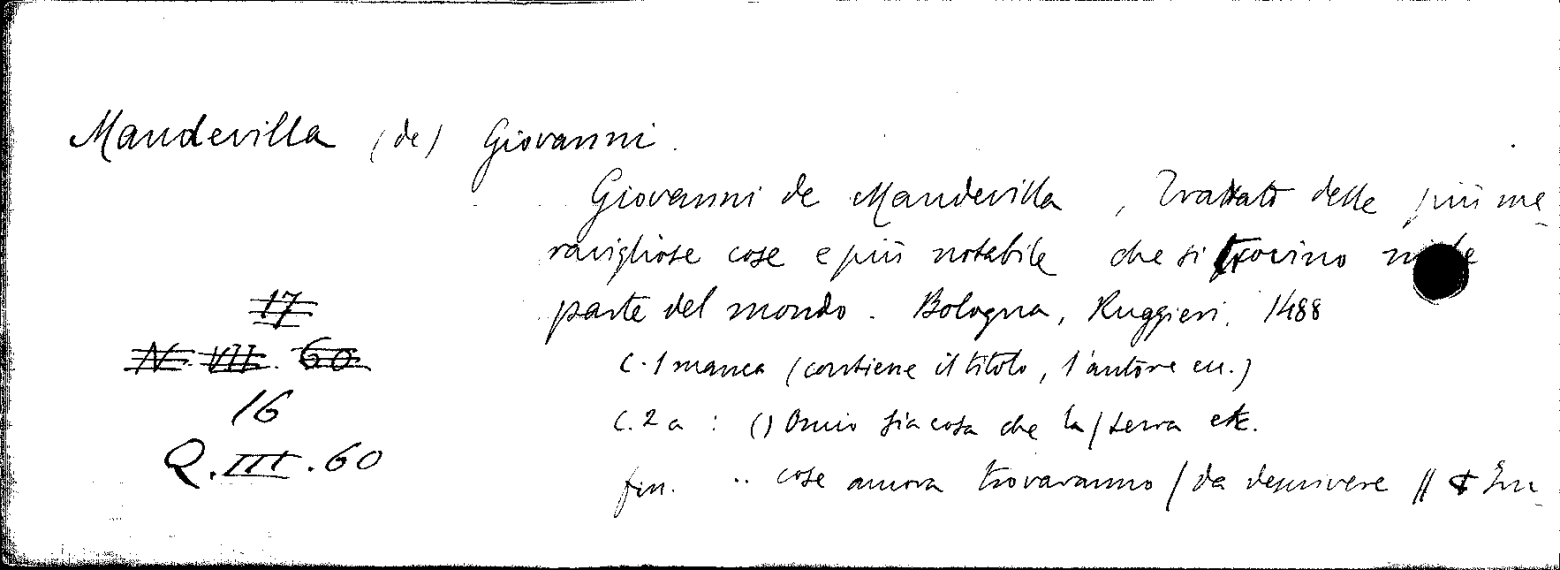 Mandevilla (de) Giovanni.
Giovanni de Mandevilla, Trattato delle più ma-
ravigliose cose e più notabile che si trovino
parte del mondo. Bologna, Ruggieri, 1488
17
N. VII. 60
c. 1 manca (contiene il titolo, l'autore ecc.)
16
c. 2 a : () Omio sia cosa che la / terra etc.
Q. III. 60
fin. .. cose ancora trovaranno / da descrivere //